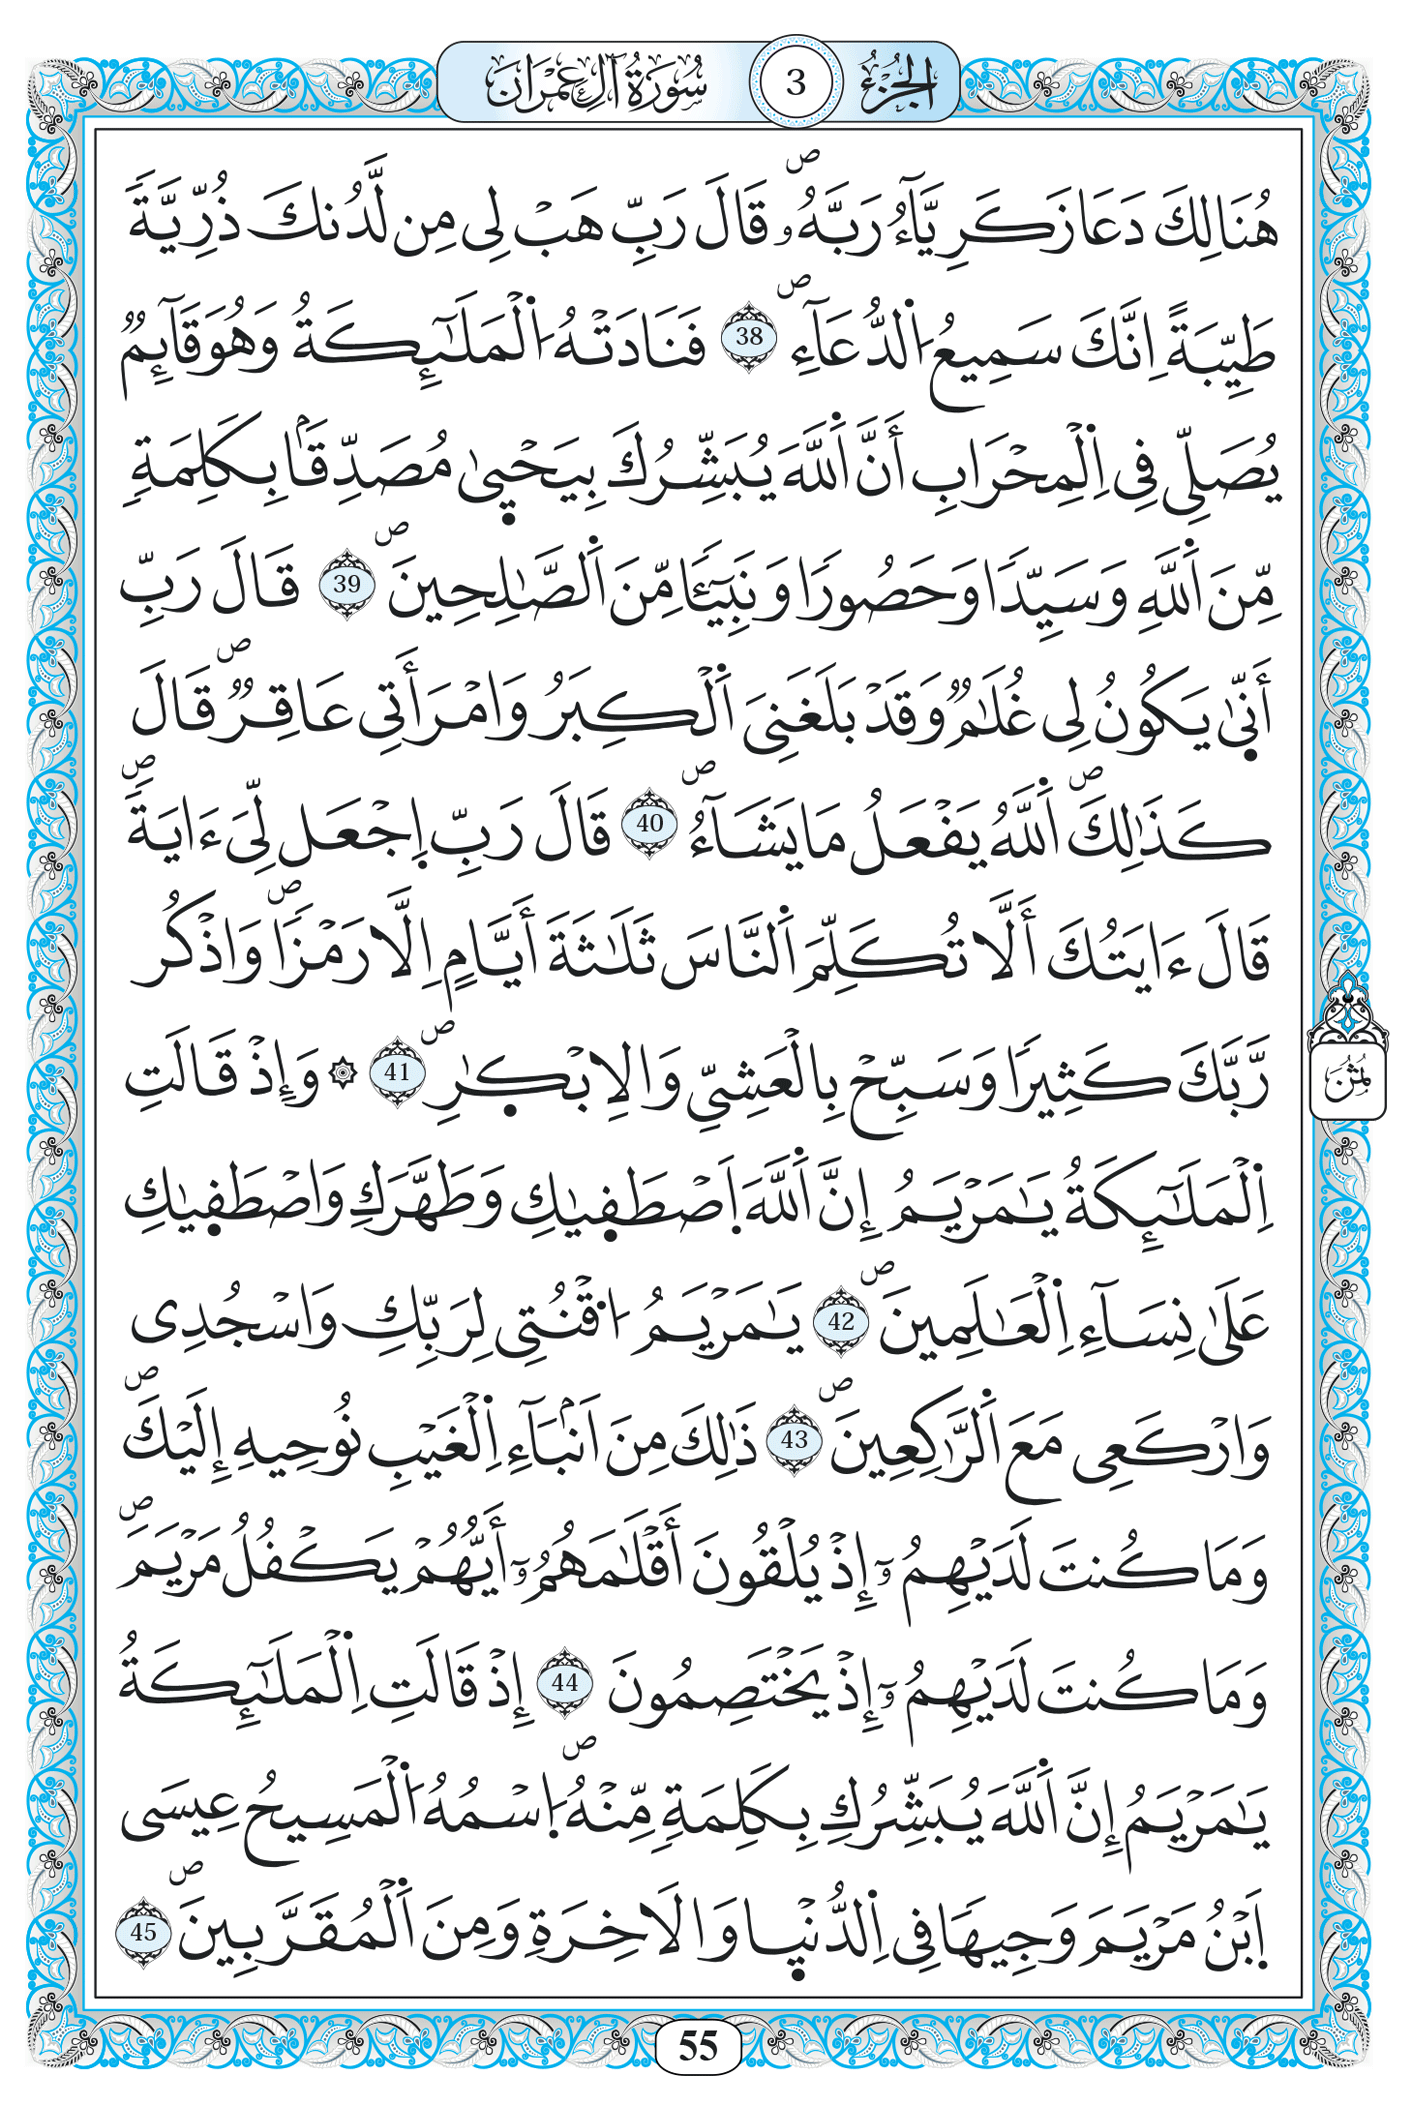 الجزء 3 سورة آل عمران
هُنَالِكَ دَعَا زَكَرِيَّآءُ رَبَّهُۥ ۖ قَالَ رَبِّ هَبْ لِى مِن لَّدُنكَ ذُرِّيَّةً
طَيِّبَةً اِنَّكَ سَمِيعُ اُ۬لدُّعَآءِ ۖ 38 فَنَادَتْهُ اُ۬لْمَلَٰٓئِكَةُ وَهُوَ قَآئِمٌ
يُصَلِّى فِى اِ۬لْمِحْرَابِ أَنَّ اَ۬للَّهَ يُبَشِّرُكَ بِيَحْيۭىٰ مُصَدِّقاَۢ بِكَلِمَةٍ
مِّنَ اَ۬للَّهِ وَسَيِّدًا وَحَصُورًا وَنَبِيٓـًٔا مِّنَ اَ۬لصَّٰلِحِينَ ۖ 39 قَالَ رَبِّ
أَنّۭىٰ يَكُونُ لِى غُلَٰمٌ وَقَدْ بَلَغَنِىَ اَ۬لْكِبَرُ وَامْرَأَتِى عَاقِرٌ ۖ قَالَ
كَذَٰلِكَ ۖ اَ۬للَّهُ يَفْعَلُ مَا يَشَآءُ ۖ 40 قَالَ رَبِّ اِ۪جْعَل لِّىَ ءَايَةً ۖ
قَالَ ءَايَتُكَ أَلَّا تُكَلِّمَ اَ۬لنَّاسَ ثَلَٰثَةَ أَيَّامٍ اِلَّا رَمْزًا ۖ وَاذْكُر
رَّبَّكَ كَثِيرًا وَسَبِّحْ بِالْعَشِىِّ وَالِابْكٰ۪رِ ۖ 41 ۞ وَإِذْ قَالَتِ
اِ۬لْمَلَٰٓئِكَةُ يَٰمَرْيَمُ إِنَّ اَ۬للَّهَ اَ۪صْطَف۪يٰكِ وَطَهَّرَكِ وَاصْطَف۪يٰكِ
ثُمُن
عَلَىٰ نِسَآءِ اِ۬لْعَٰلَمِينَ ۖ 42 يَٰمَرْيَمُ اُ۟قْنُتِى لِرَبِّكِ وَاسْجُدِى
وَارْكَعِى مَعَ اَ۬لرَّٰكِعِينَ ۖ 43 ذَٰلِكَ مِنَ اَنۢبَآءِ اِ۬لْغَيْبِ نُوحِيهِ إِلَيْكَ ۖ
وَمَا كُنتَ لَدَيْهِمُۥٓ إِذْ يُلْقُونَ أَقْلَٰمَهُمُۥٓ أَيُّهُمْ يَكْفُلُ مَرْيَمَ ۖ
وَمَا كُنتَ لَدَيْهِمُۥٓ إِذْ يَخْتَصِمُونَ 44 إِذْ قَالَتِ اِ۬لْمَلَٰٓئِكَةُ
يَٰمَرْيَمُ إِنَّ اَ۬للَّهَ يُبَشِّرُكِ بِكَلِمَةٍ مِّنْهُ ۖ اُ۪سْمُهُ اُ۬لْمَسِيحُ عِيسَى
اَ۪بْنُ مَرْيَمَ وَجِيهًا فِى اِ۬لدُّنْي۪ا وَالَاخِرَةِ وَمِنَ اَ۬لْمُقَرَّبِينَ ۖ 45
55